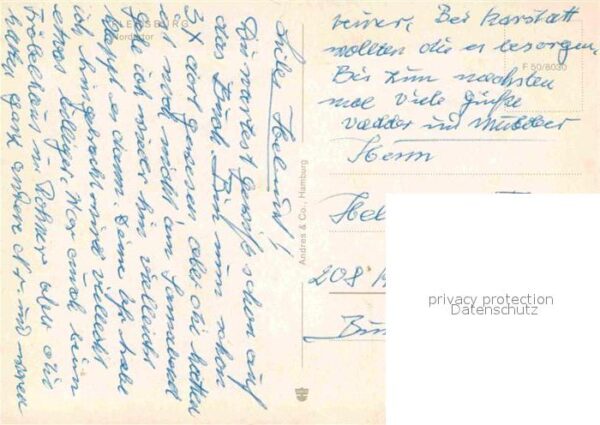 FLENSBURG
Nordertor
Liebe Helmi!
Du wartest gewiss schon auf
das Buch. Bin nun schon
3x dort gewesen aber die hatten
es noch nicht. am Sonnabend
ich wieder hin vielleicht
klappt es dann. Deine
ich hingebracht und vielleicht
etwas billiger. War auch beim
Fröbelhaus in aber die
hatten ganz andere Nr. und waren
teurer. Bei Karstatt
wollten die es besorgen.
Bis zum nächsten
mal viele Grüße
Vadder und Mutter
Herrn
Hel
208
Andres & Co., Hamburg
F 50/8030
privacy protection
Datenschutz